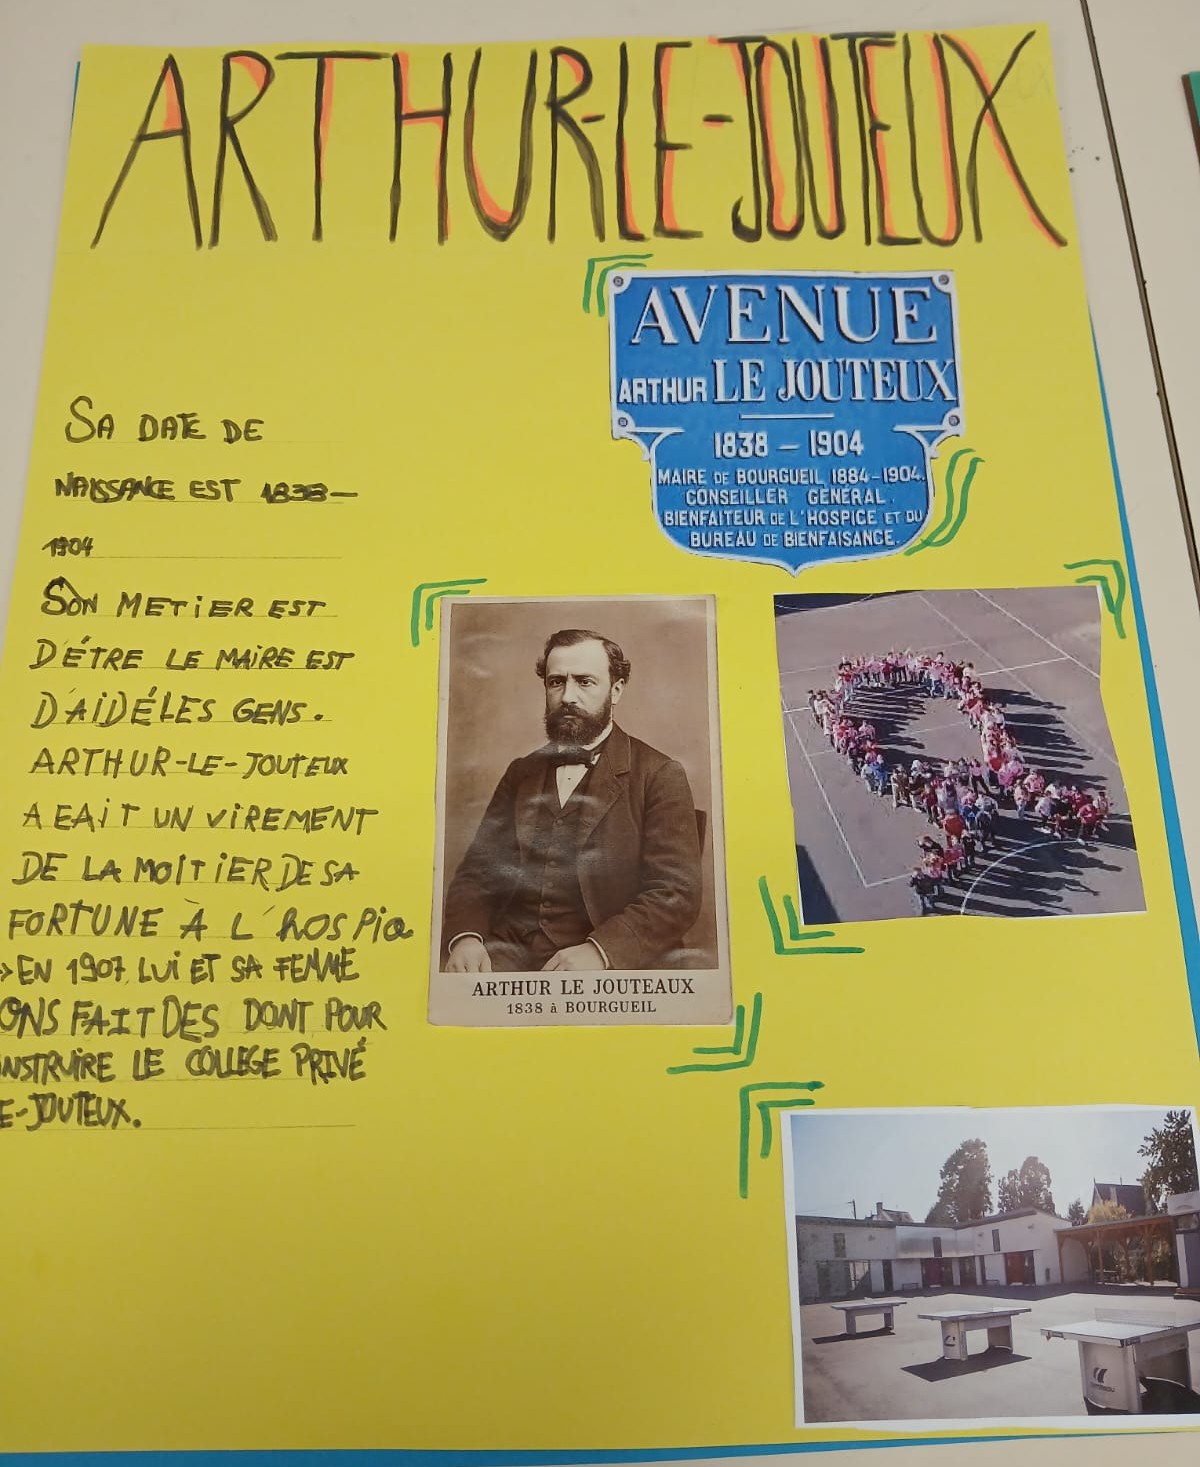 ARTHUR-LE-JOUTEUX
AVENUE
ARTHUR LE JOUTEUX
1838 - 1904
MAIRE DE BOURGUEIL 1884-1904.
CONSEILLER GENERAL.
BIENFAITEUR DE L'HOSPICE ET DU
BUREAU DE BIENFAISANCE.
SA DATE DE
NAISSANCE EST 1838-
1904
SON METIER EST
D'ÉTRE LE MAIRE EST
D'AIDÉLES GENS.
ARTHUR-LE-JOUTEUX
A EAIT UN VIREMENT
DE LA MOITIER DE SA
FORTUNE À L'HOSPICE
→EN 1907, LUI ET SA FEMME
ONS FAIT DES DONT POUR
NSTRUIRE LE COLLEGE PRIVÉ
E-JOUTEUX.
ARTHUR LE JOUTEAUX
1838 à BOURGUEIL